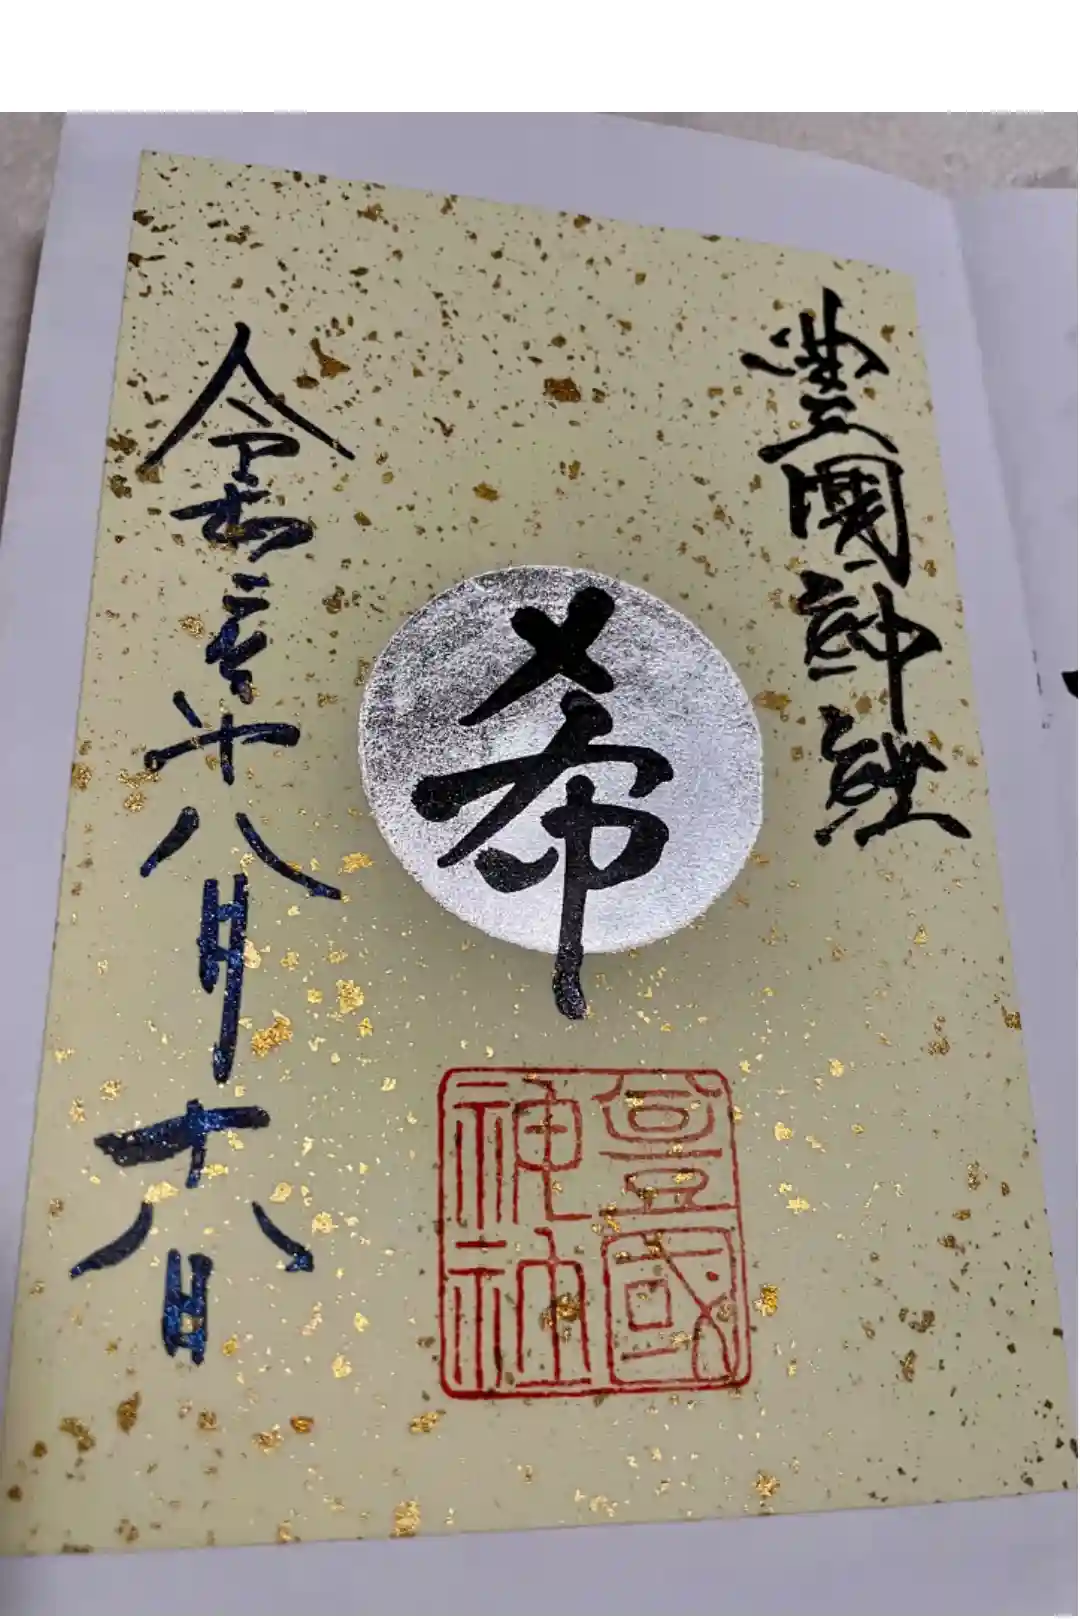 豊國神社
希
豊國
神社
令和三年八月十八日